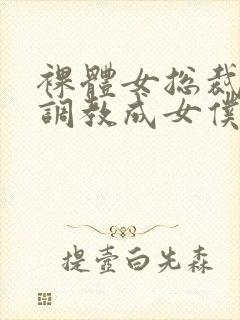 裸體女総裁
調教成女僕
提壺白先森